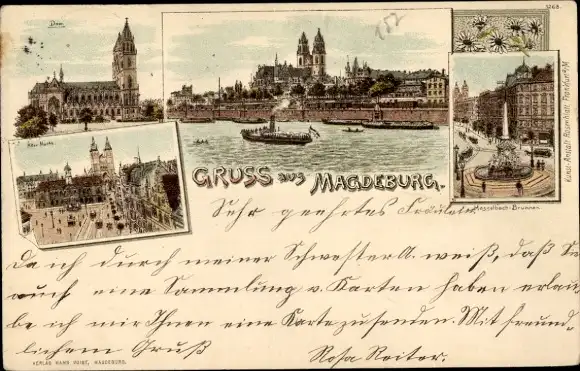 Dom.
1268.
152
Alter Markt.
GRUSS aus MAGDEBURG.
Hasselbach-Brunnen.
Kunst-Anstalt Rosenblatt, Frankfurt a/M.
Sehr geehrtes Fräulein.
Da ich durch meiner Schwester A. weiß, daß Sie
auch eine Sammlung v. Karten haben erlau-
be ich mir Ihnen eine Karte zusenden. Mit freund-
lichem Gruß Rosa Reiter.
VERLAG HANS VOIGT, MAGDEBURG.